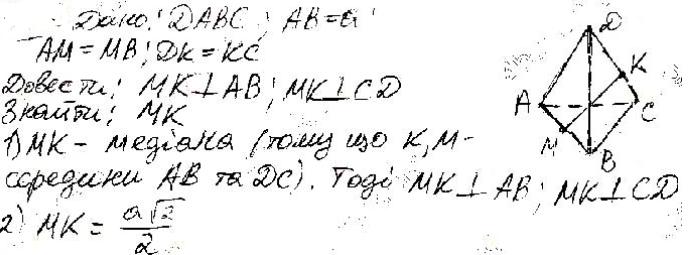 Дано: DABC; AB=a
AM=MB; DK=KC
Довести: MK⊥AB; MK⊥CD
Знайти: MK
1) MK - медіана (тому що K, M -
середини AB та DC). Тоді MK⊥AB; MK⊥CD
2) MK = a√2/2
D
K
A
C
M
B